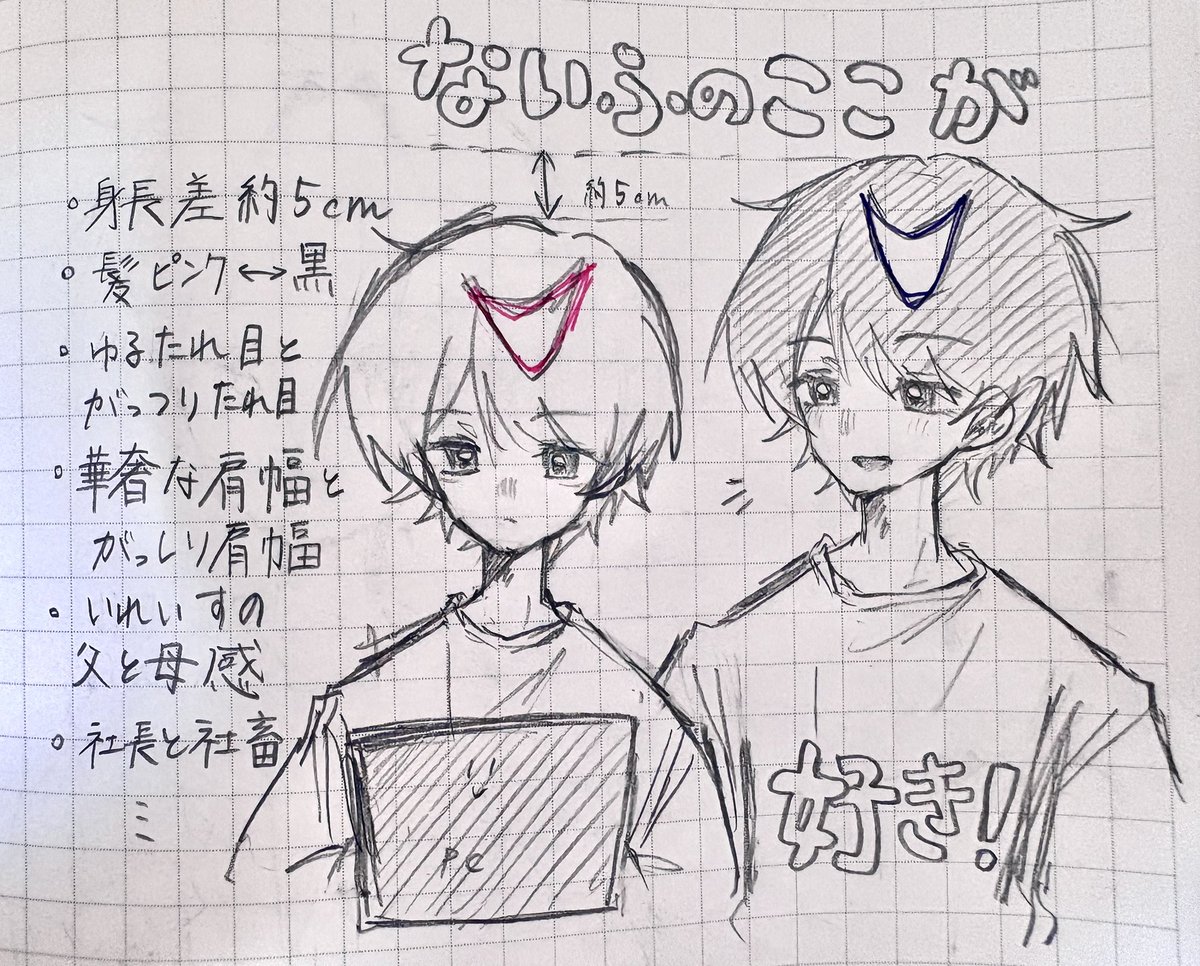 ないふのここが
約5cm
。身長差約5cm
。髪ピンク↔黒
。ゆるたれ目と
がっつりたれ目
。華奢な肩幅と
がっしり肩幅
。いれいすの
父と母感
。社長と社畜
ミ
PC
好き!